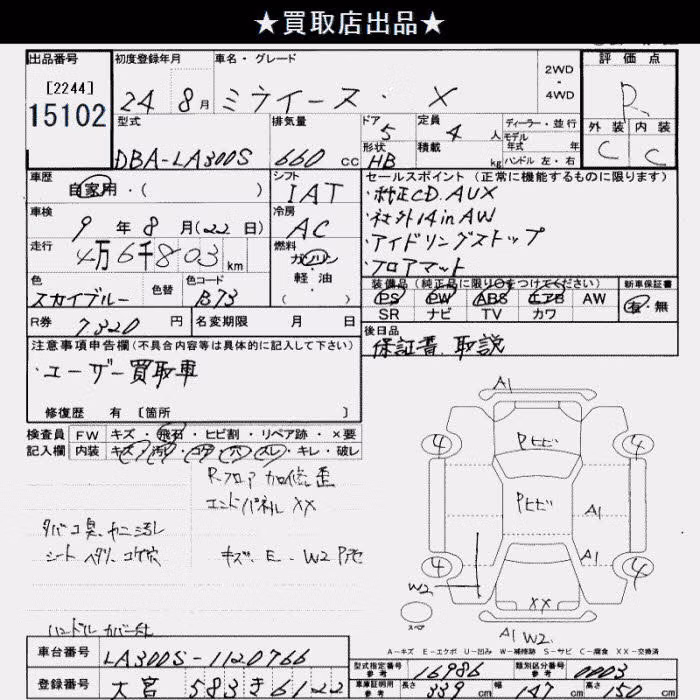 ★買取店出品★
出品番号 初度登録年月 車名・グレード 2WD・4WD 評価点
[2244]
15102
24年 8月 ミライース・X R
型式 排気量 ドア 5 定員 4人 ディーラー・並行 外装 内装
モデル年式 年
DBA-LA300S 660cc 形状 HB 積載 kg ハンドル 左・右 C C
車歴 シフト セールスポイント(正常に機能するものに限ります)
自家用・( ) IAT ・純正CD.AUX
車検 冷房 ・社外14inAW
9年8月(22日) AC ・アイドリングストップ
走行 燃料 ・フロアマット
4万6千803km ガソリン
軽・油
( )
色 色替 色コード 装備品(純正品に限り○をつけてください) 新車保証書
スカイブルー B73 PS PW ABS エアB AW 有・無
SR ナビ TV カワ
R券 7320円 名変期限 月 日 後日品
保証書、取説
注意事項申告欄(不具合内容等は具体的に記入して下さい)
・ユーザー買取車
修復歴 有 [箇所 ]
検査員 FW キズ・飛石・ヒビ割・リペア跡・×要
記入欄 内装 キズ・汚れ・コゲ・穴・スレ・キレ・破レ
Rフロア 加修歪
エンドパネル XX
タバコ臭、ヤニ汚レ
シート ヘタリ、コゲ穴 キズ、E、W2 P他
ハンドルカバー
A1
4 4
Pヒビ
Pヒビ A1
A1
4 4
W2
XX
スペア
A1 W2
A-キズ E-エクボ U-凹み W-補修跡 S-サビ C-腐食 XX-交換済
車台番号 LA300S-1120766
型式指定番号 参考 16986 類別区分番号 参考 0003
登録番号 大宮 583 き 6122
車庫証明用 参考 長さ 339cm 幅 147cm 高さ 150cm